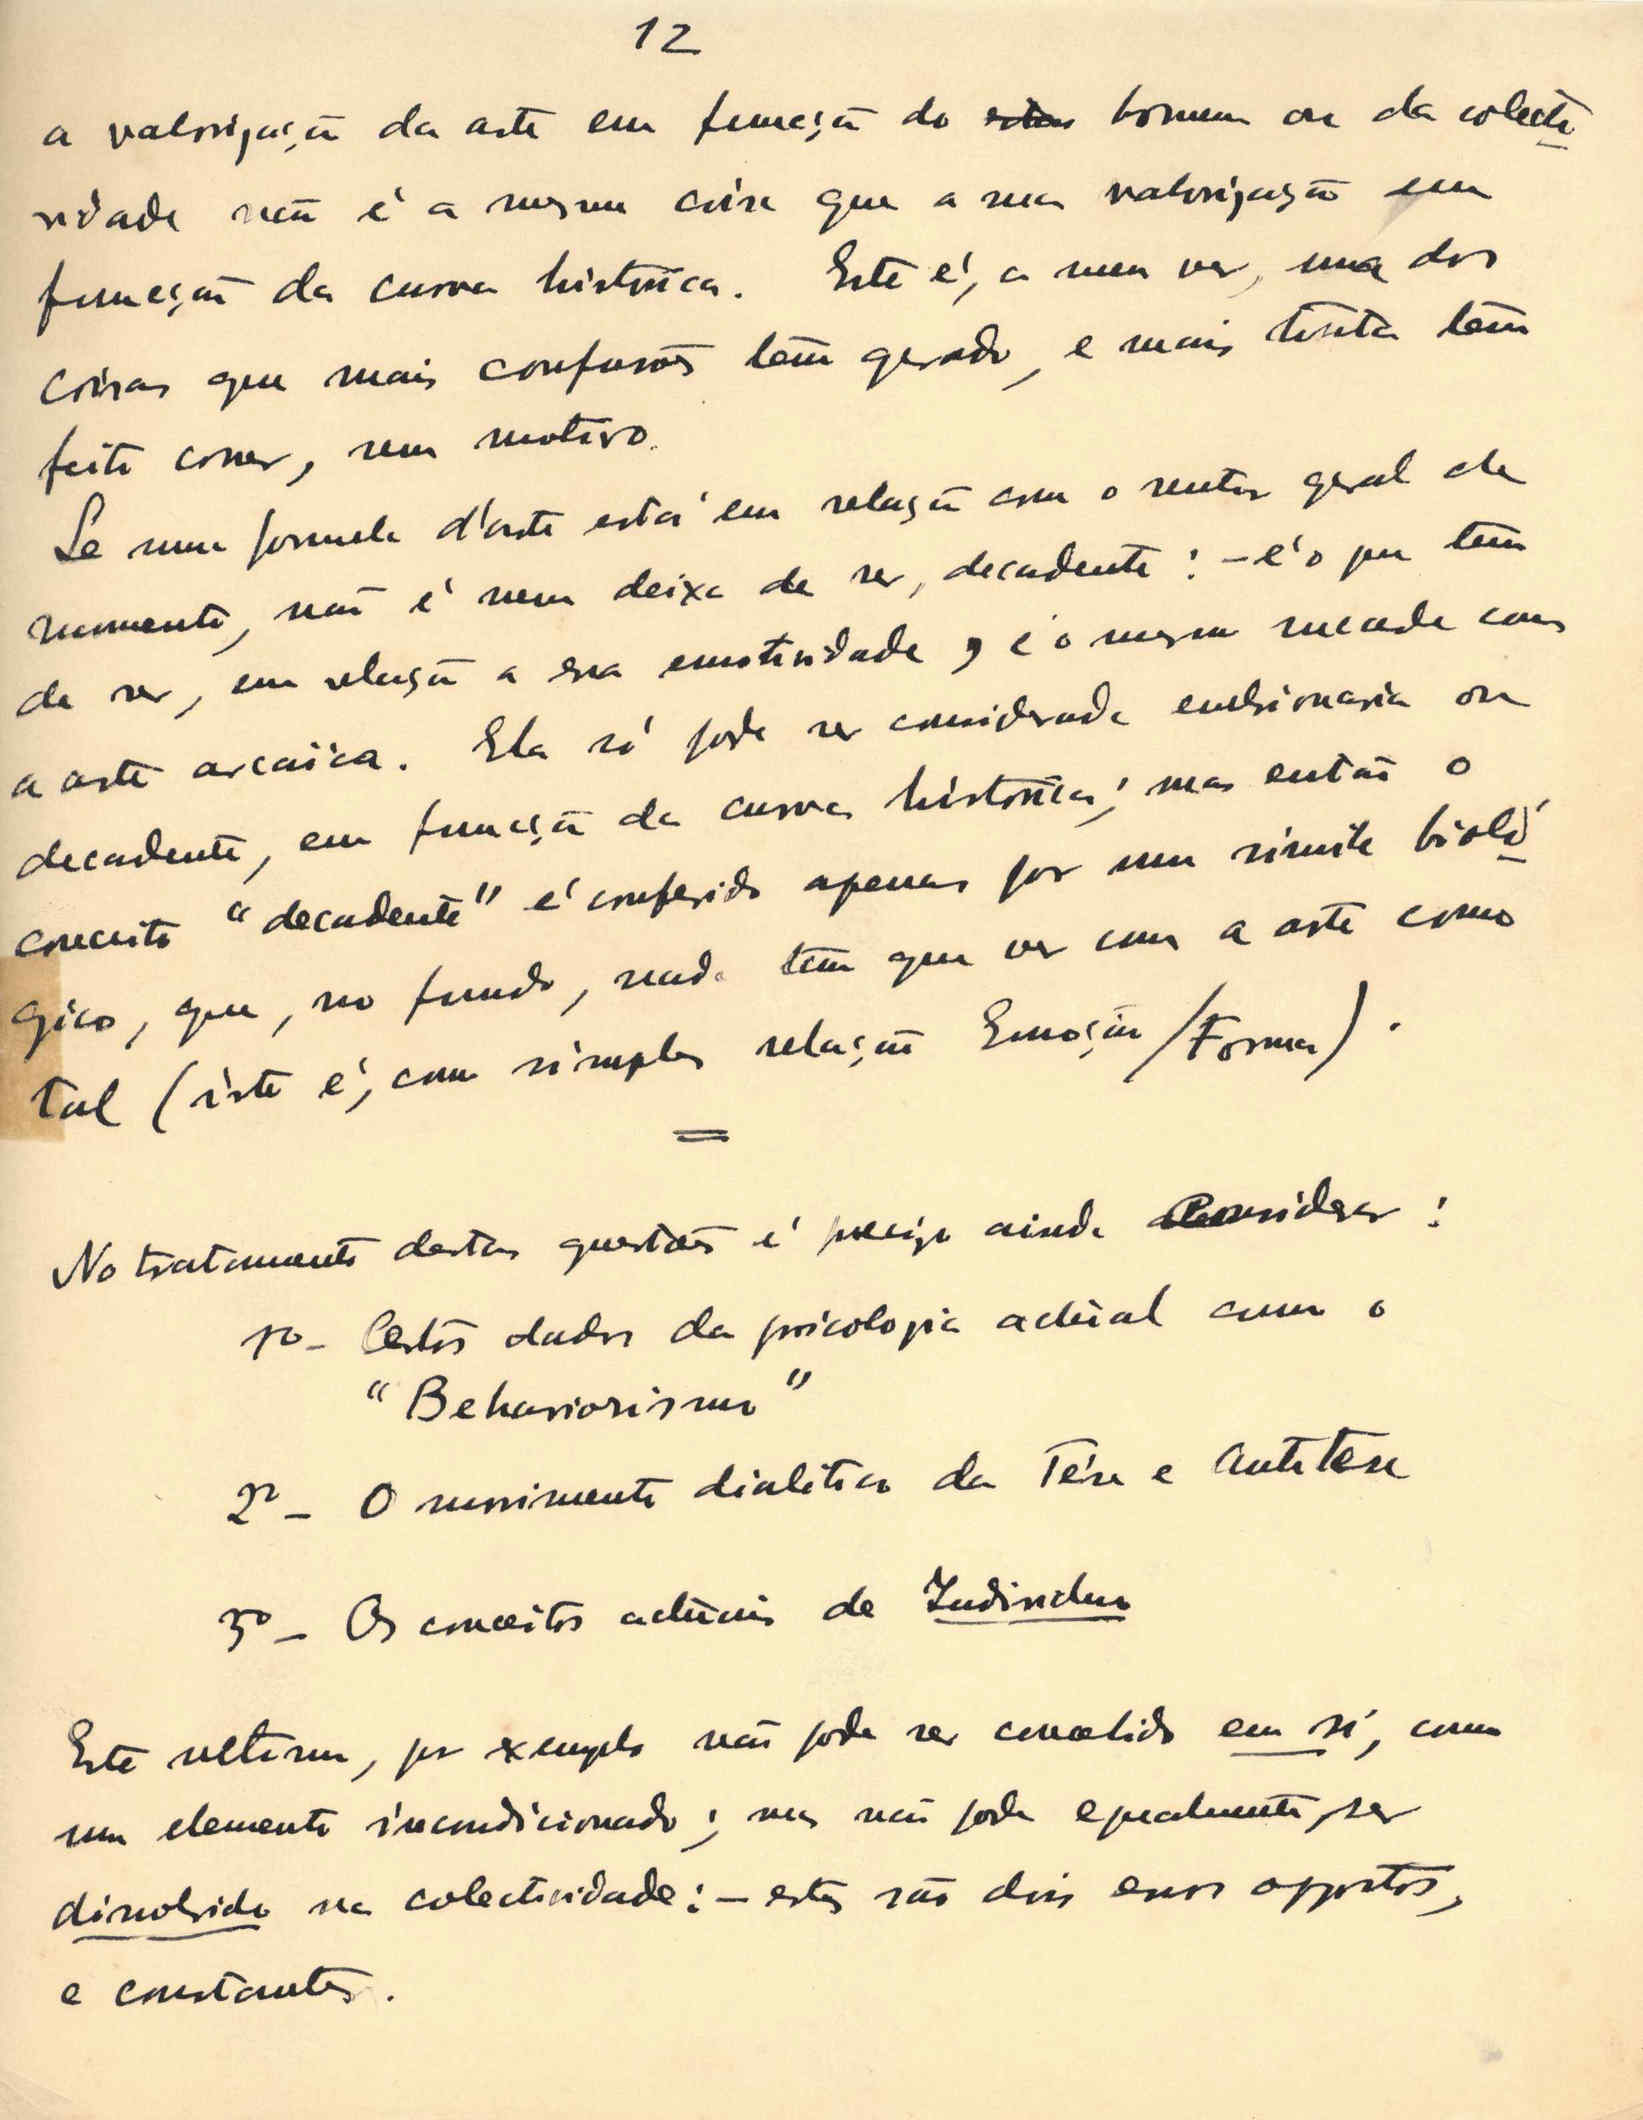 12
a valorização da arte em função do homem ou da colecti
vidade não é a mesma coisa que a sua valorização em
função da curva histórica. Este é, a meu ver, uma das
coisas que mais confusões têm gerado, e mais tinta têm
feito correr, sem motivo.
Se uma formula d'arte está em relação com o sentir geral de
momento, não é nem deixa de ser, decadente: – é o que tem
de ser, em relação a essa emotividade, e o mesmo sucede com
a arte arcaica. Ela só pode ser considerada embrionaria ou
decadente, em função da curva histórica; mas então o
conceito "decadente" é conferido apenas por um simile bioló
gico, que, no fundo, nada tem que ver com a arte como
tal (isto é, como simples relação Emoção/Forma).
=
No tratamento destas questões é preciso ainda considerar:
1º – Certos dados da psicologia actual como o
"Behaviorismo"
2º – O movimento dialético da Tése e Antitese
3º – Os conceitos actuais de Individuo
Este ultimo, por exemplo não pode ser concebido em si, como
um elemento incondicionado; mas não pode egualmente, ser
dissolvido na colectividade: – estes são dois erros oppostos,
e constantes.